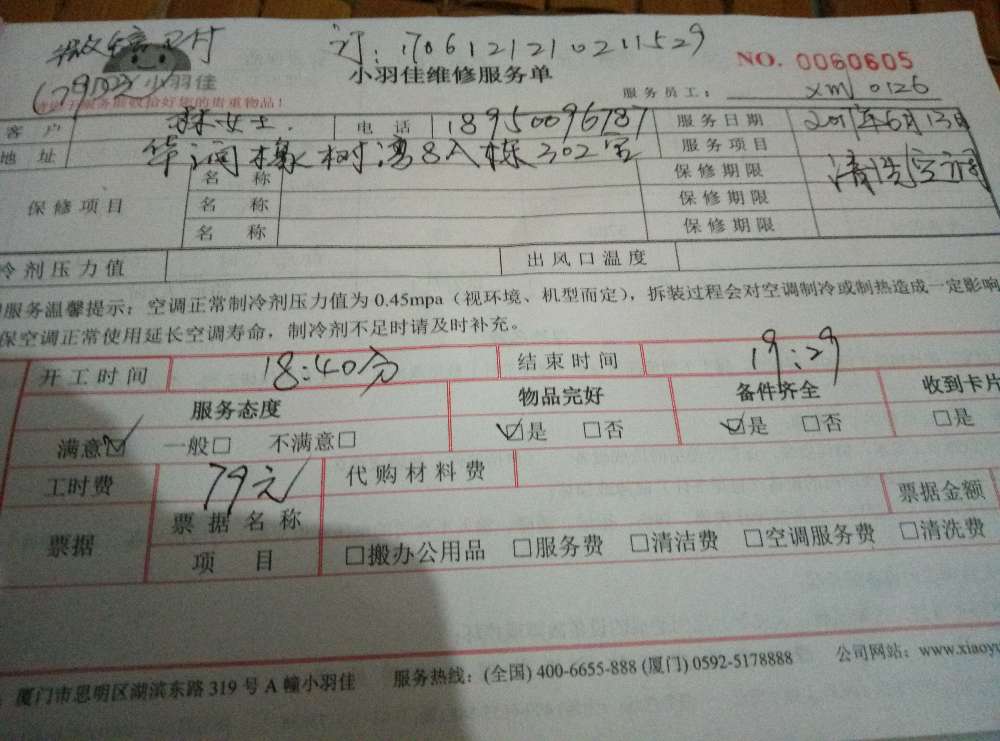 微信支付 订:1706121210211529
(79 小羽佳 小羽佳维修服务单 NO. 0060605
的贵重物品! 服务员工: xm 0126
客户 林女士. 电话 18950096787 服务日期 2017年6月13日
地址 华润橡树湾8 栋302室 服务项目 清洗空调
保修项目 名称 保修期限
名称 保修期限
名称 保修期限
冷剂压力值 出风口温度
服务温馨提示:空调正常制冷剂压力值为 0.45mpa(视环境、机型而定),拆装过程会对空调制冷或制热造成一定影响
保空调正常使用延长空调寿命,制冷剂不足时请及时补充。
开工时间 18:40分 结束时间 19:29
服务态度 物品完好 备件齐全 收到卡片
满意☑ 一般□ 不满意□ ☑是 □否 ☑是 □否 □是
工时费 79元 代购材料费
票据 票据名称 票据金额
项目 □搬办公用品 □服务费 □清洁费 □空调服务费 □清洗费
:厦门市思明区湖滨东路 319 号 A 幢小羽佳 服务热线:(全国) 400-6655-888 (厦门) 0592-5178888 公司网站:www.xiaoyu